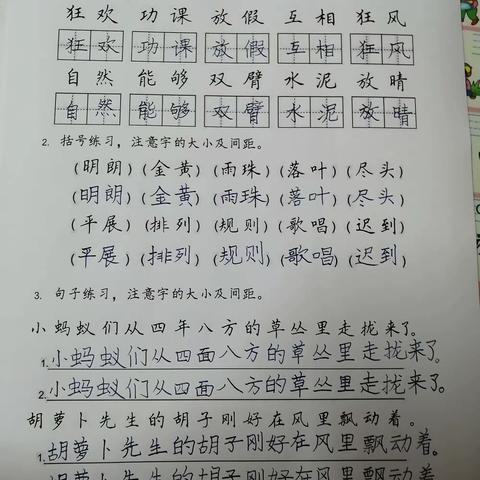 狂欢 功课 放假 互相 狂风
狂欢 功课 放假 互相 狂风
自然 能够 双臂 水泥 放晴
自然 能够 双臂 水泥 放晴
2. 括号练习，注意字的大小及间距。
(明朗) (金黄) (雨珠) (落叶) (尽头)
(明朗) (金黄) (雨珠) (落叶) (尽头)
(平展) (排列) (规则) (歌唱) (迟到)
(平展) (排列) (规则) (歌唱) (迟到)
3. 句子练习，注意字的大小及间距。
小蚂蚁们从四年八方的草丛里走拢来了。
1.小蚂蚁们从四面八方的草丛里走拢来了。
2.小蚂蚁们从四面八方的草丛里走拢来了。
胡萝卜先生的胡子刚好在风里飘动着。
1.胡萝卜先生的胡子刚好在风里飘动着。
胡萝卜先生的胡子刚好在风里飘动着